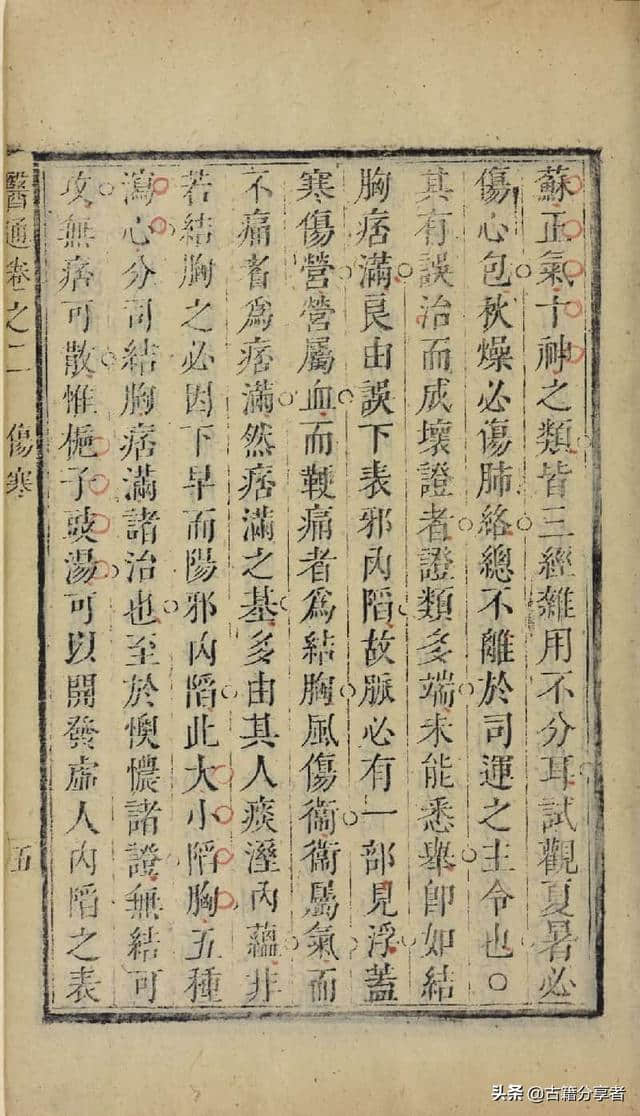 蘇正氣十神之類皆三經雜用不分耳試觀夏暑必
傷心包秋燥必傷肺絡總不離於司運之主令也○
其有誤治而成壞證者證類多端未能悉舉卽如結
胸痞滿良由誤下表邪內陷故脈必有一部見浮蓋
寒傷營營屬血而鞕痛者爲結胸風傷衞衞屬氣而
不痛者爲痞滿然痞滿之基多由其人痰溼內蘊非
若結胸之必因下早而陽邪內陷此大小陷胸五種
瀉心分司結胸痞滿諸治也至於懊憹諸證無結可
攻無痞可散惟梔子豉湯可以開發虛人內陷之表
醫通卷之二 傷寒 五
头条 @古籍分享者